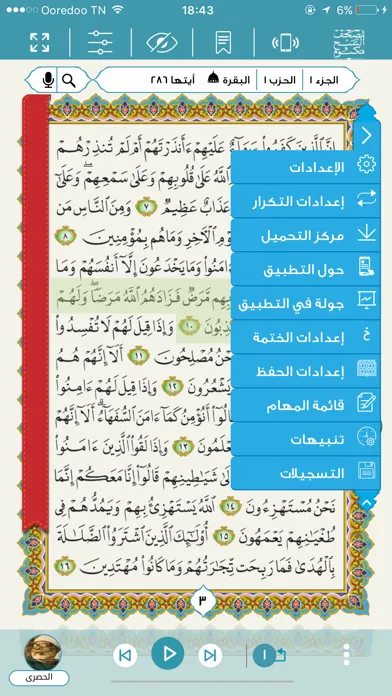 Ooredoo TN 18:43 6%
الجزء ١ الحزب ١ البقرة أيتها ٢٨٦
إِنَّ ٱلَّذِينَ كَفَرُوا۟ سَوَآءٌ عَلَيْهِمْ ءَأَنذَرْتَهُمْ أَمْ لَمْ تُنذِرْهُمْ
ٱللَّهُ عَلَىٰ قُلُوبِهِمْ وَعَلَىٰ سَمْعِهِمْ ۖ وَعَلَىٰٓ
عَذَابٌ عَظِيمٌ ٧ وَمِنَ ٱلنَّاسِ مَن
ٱلْـَٔاخِرِ وَمَا هُم بِمُؤْمِنِينَ ٨
ءَامَنُوا۟ وَمَا يَخْدَعُونَ إِلَّآ أَنفُسَهُمْ وَمَا
مَّرَضٌ فَزَادَهُمُ ٱللَّهُ مَرَضًا ۖ وَلَهُمْ
١٠ وَإِذَا قِيلَ لَهُمْ لَا تُفْسِدُوا۟
نَحْنُ مُصْلِحُونَ ١١ أَلَآ إِنَّهُمْ هُمُ
يَشْعُرُونَ ١٢ وَإِذَا قِيلَ لَهُمْ ءَامِنُوا۟
قَالُوٓا۟ أَنُؤْمِنُ كَمَآ ءَامَنَ ٱلسُّفَهَآءُ ۗ أَلَآ إِنَّهُمْ
١٣ وَإِذَا لَقُوا۟ ٱلَّذِينَ ءَامَنُوا۟
شَيَـٰطِينِهِمْ قَالُوٓا۟ إِنَّا مَعَكُمْ إِنَّمَا
نَحْنُ مُسْتَهْزِءُونَ ١٤ ٱللَّهُ يَسْتَهْزِئُ بِهِمْ وَيَمُدُّهُمْ فِى
طُغْيَـٰنِهِمْ يَعْمَهُونَ ١٥ أُو۟لَـٰٓئِكَ ٱلَّذِينَ ٱشْتَرَوُا۟ ٱلضَّلَـٰلَةَ
بِٱلْهُدَىٰ فَمَا رَبِحَت تِّجَـٰرَتُهُمْ وَمَا كَانُوا۟ مُهْتَدِينَ ١٦
٣
الإعدادات
إعدادات التكرار
مركز التحميل
حول التطبيق
جولة في التطبيق
إعدادات الختمة
إعدادات الحفظ
قائمة المهام
تنبيهات
التسجيلات
١
الحصرى